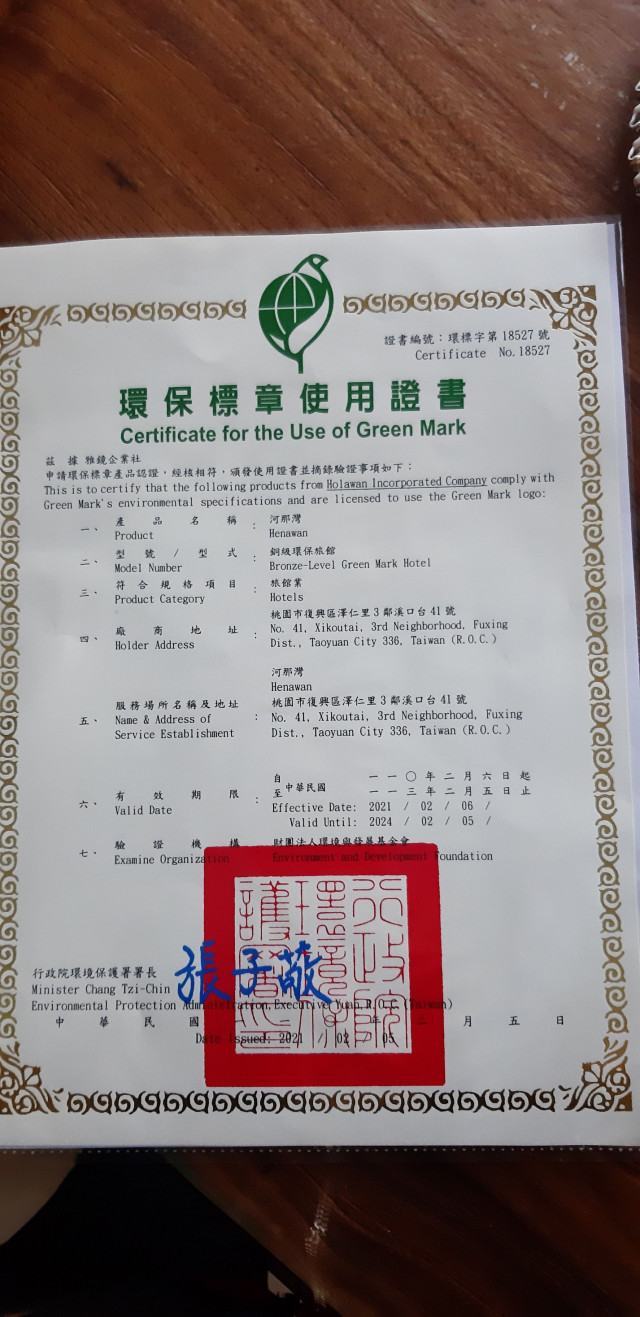 證書編號：環標字第18527號
Certificate No.18527
環保標章使用證書
Certificate for the Use of Green Mark
茲 據 雅鏡企業社
申請環保標章產品認證，經核相符，頒發使用證書並摘錄驗證事項如下：
This is to certify that the following products from Holawan Incorporated Company comply with
Green Mark's environmental specifications and are licensed to use the Green Mark logo:
一、 產品名稱 : 河那灣
Product Henawan
二、 型號/型式 : 銅級環保旅館
Model Number Bronze-Level Green Mark Hotel
三、 符合規格項目 : 旅館業
Product Category Hotels
四、 廠商地址 : 桃園市復興區澤仁里3鄰溪口台41號
Holder Address No. 41, Xikoutai, 3rd Neighborhood, Fuxing
Dist., Taoyuan City 336, Taiwan (R.O.C.)
河那灣
Henawan
五、 服務場所名稱及地址 : 桃園市復興區澤仁里3鄰溪口台41號
Name & Address of No. 41, Xikoutai, 3rd Neighborhood, Fuxing
Service Establishment Dist., Taoyuan City 336, Taiwan (R.O.C.)
六、 有效期限 : 自中華民國 一一〇年二月六日起
至 一一三年二月五日止
Valid Date Effective Date: 2021 / 02 / 06 /
Valid Until: 2024 / 02 / 05 /
七、 驗證機構 : 財團法人環境與發展基金會
Examine Organization Environment and Development Foundation
行政院環境保護署署長 張子敬
Minister Chang Tzi-Chin
Environmental Protection Administration, Executive Yuan, R.O.C.(Taiwan)
中華民國 年二月五日
Date Issued: 2021 / 02 05